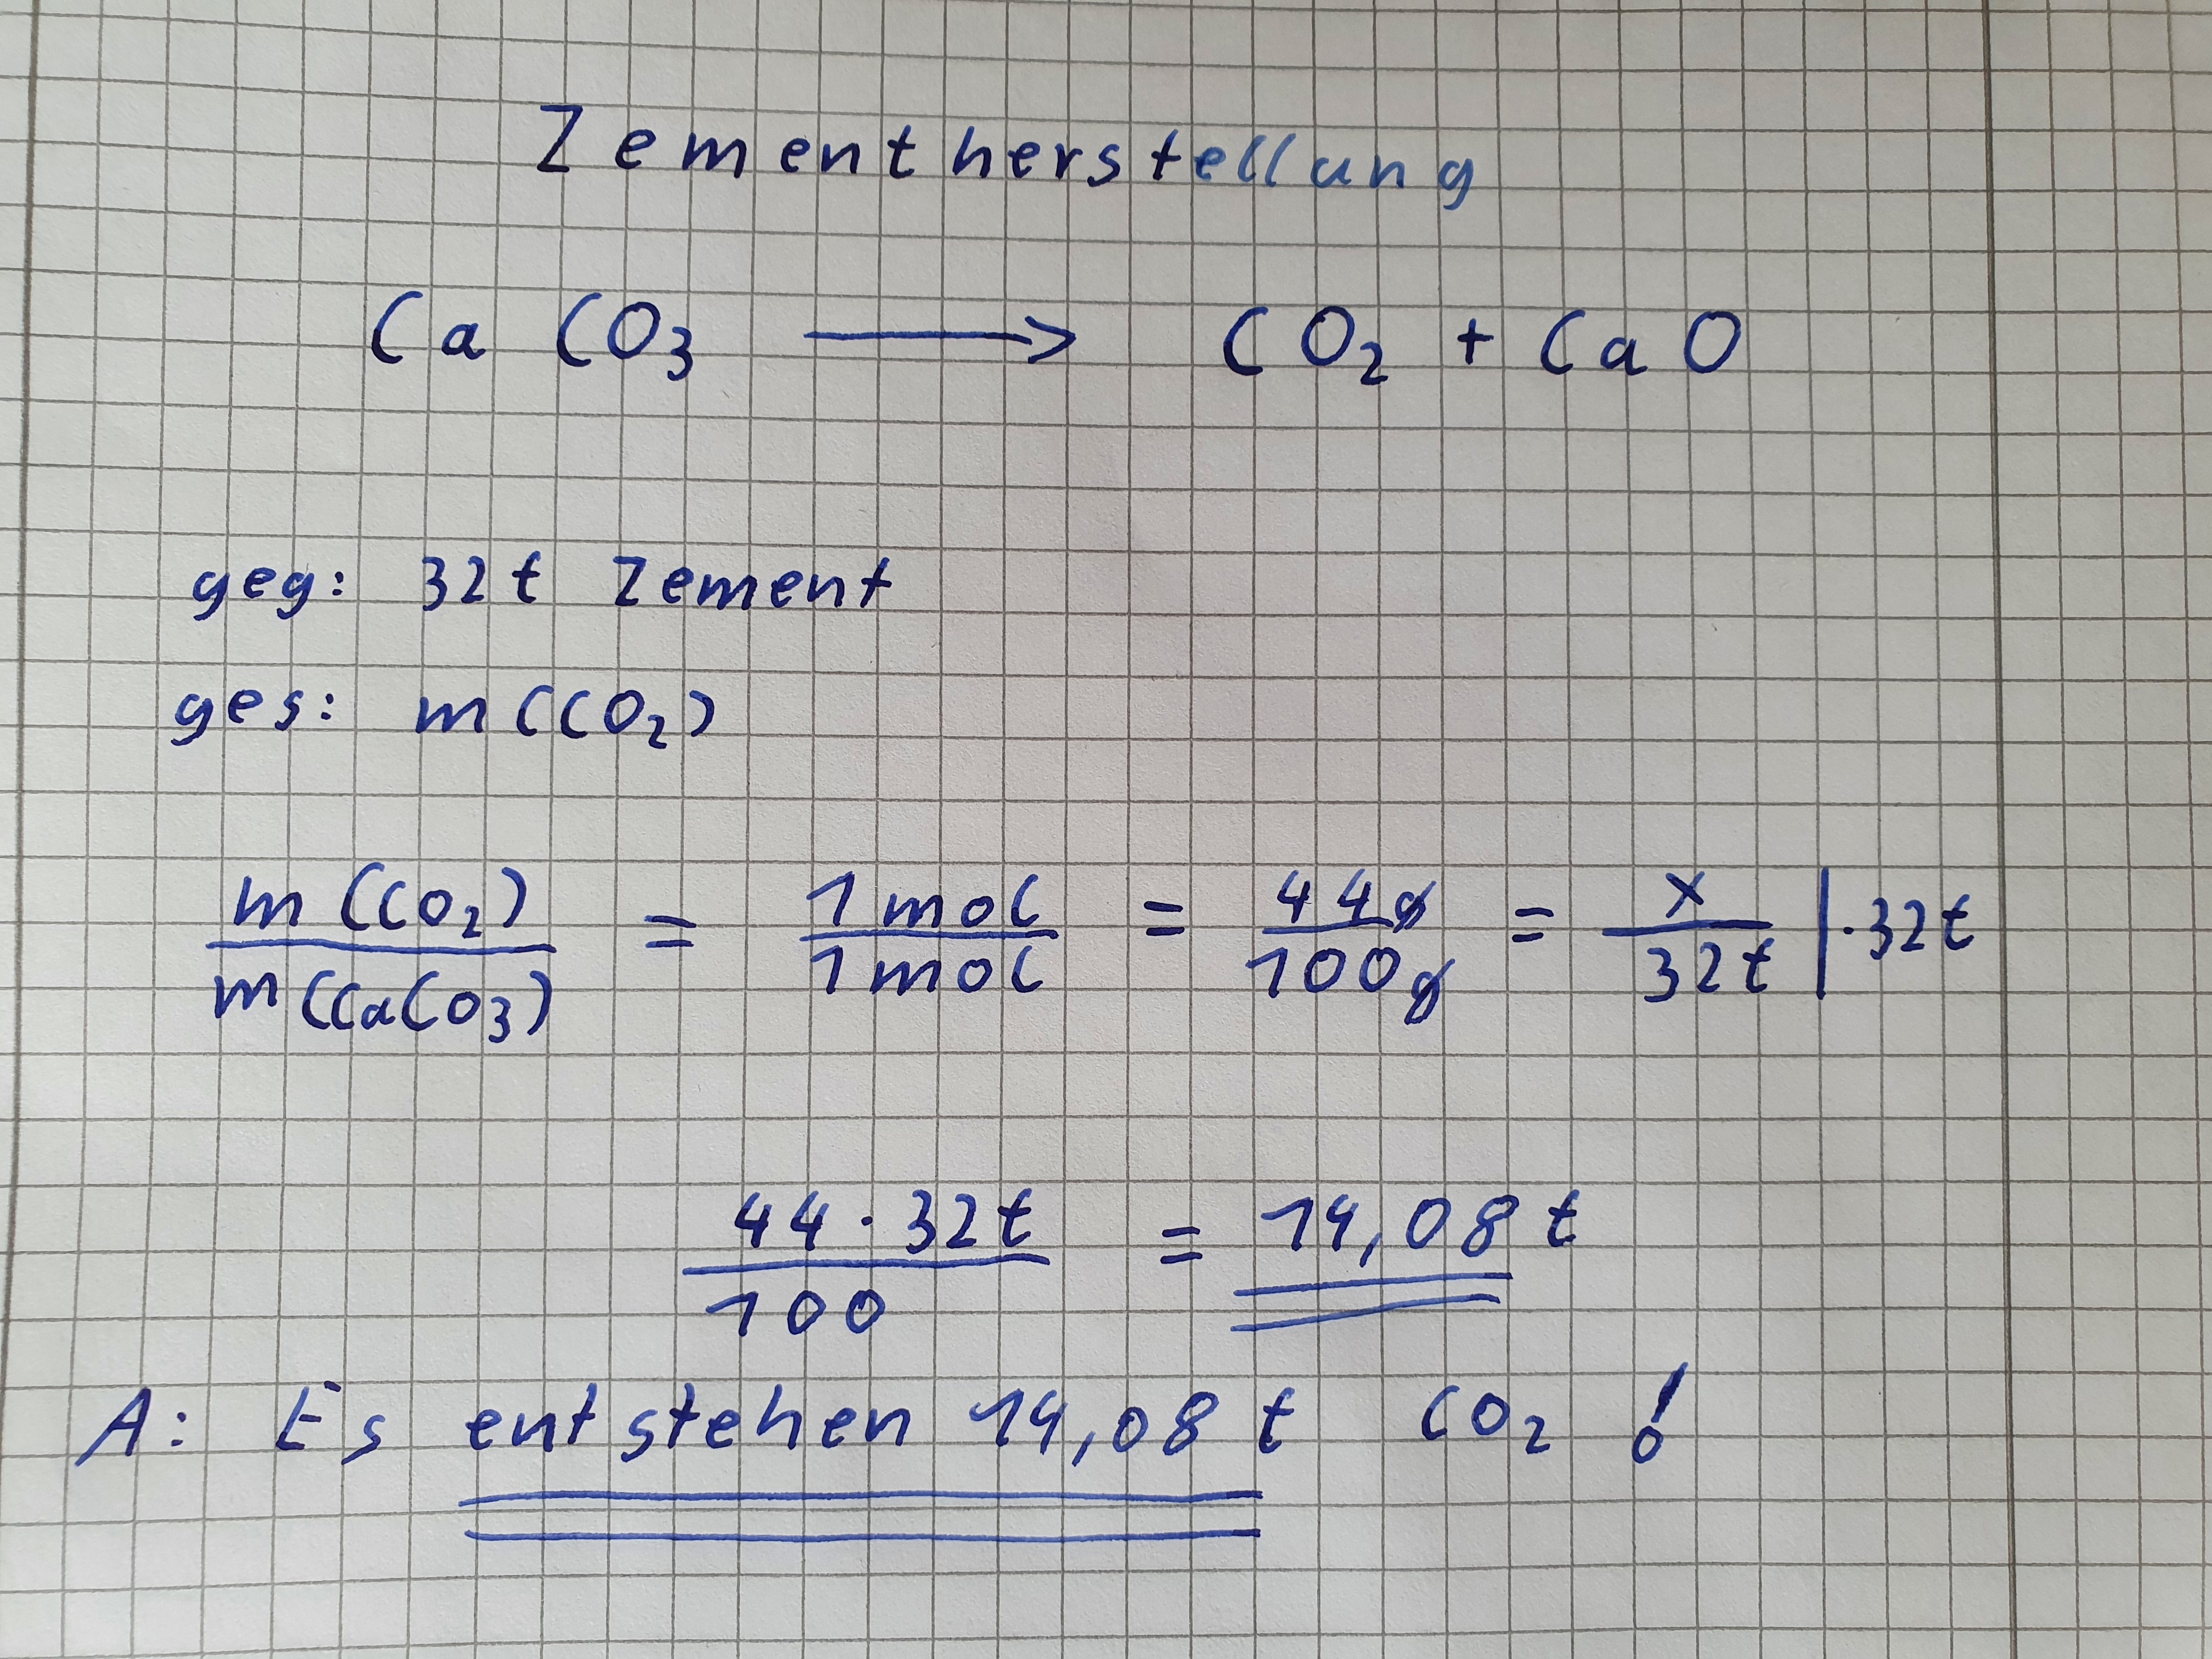 Zementherstellung
CaCO₃ ⟶ CO₂ + CaO
geg: 32t Zement
ges: m(CO₂)
m(CO₂)/m(CaCO₃) = 1mol/1mol = 44g/100g = x/32t | · 32t
44 · 32t/100 = 14,08 t
A: Es entstehen 14,08 t CO₂ !